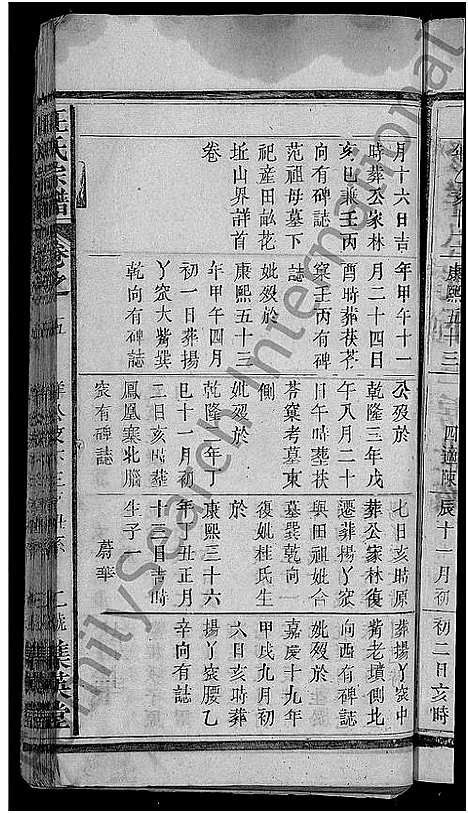 康熙五十三
四適陳
辰十一月初
初二日亥時
月十六日吉
時葬公家林
亥巳兼壬丙
向有碑誌
范祖母墓下
祀產田畝花
坵山界詳首
卷
年甲午十一
月二十四日
酉時葬茯苓
窠壬丙有碑
誌
妣歿於
康熙五十三
年甲午四月
初一日葬揚
丫窊大觜巽
乾向有碑誌
公歿於
乾隆三年戊
午八月二十
日午時葬茯
苓窠考墓東
側
妣歿於
乾隆二年丁
巳十一月初
二日亥時葬
鳳凰寨北腦
窊有碑誌
七日亥時原
葬公家林復
遷葬揚丫窊
與田祖妣合
墓巽乾向
復姚桂氏生
於
康熙三十六
年丁丑正月
十三日吉時
生子一
蔚華
葬揚丫窊中
觜老墳側北
向西有碑誌
妣歿於
嘉慶十九年
甲戌九月初
六日亥時葬
揚丫窊腰乙
辛向有誌
氏宗譜 卷之 五
FamilySearch International